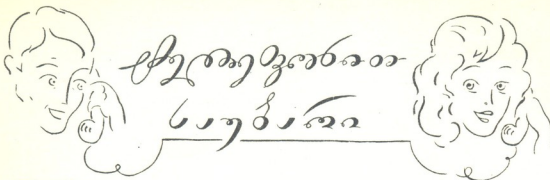 ტელეფონით
საუბარი